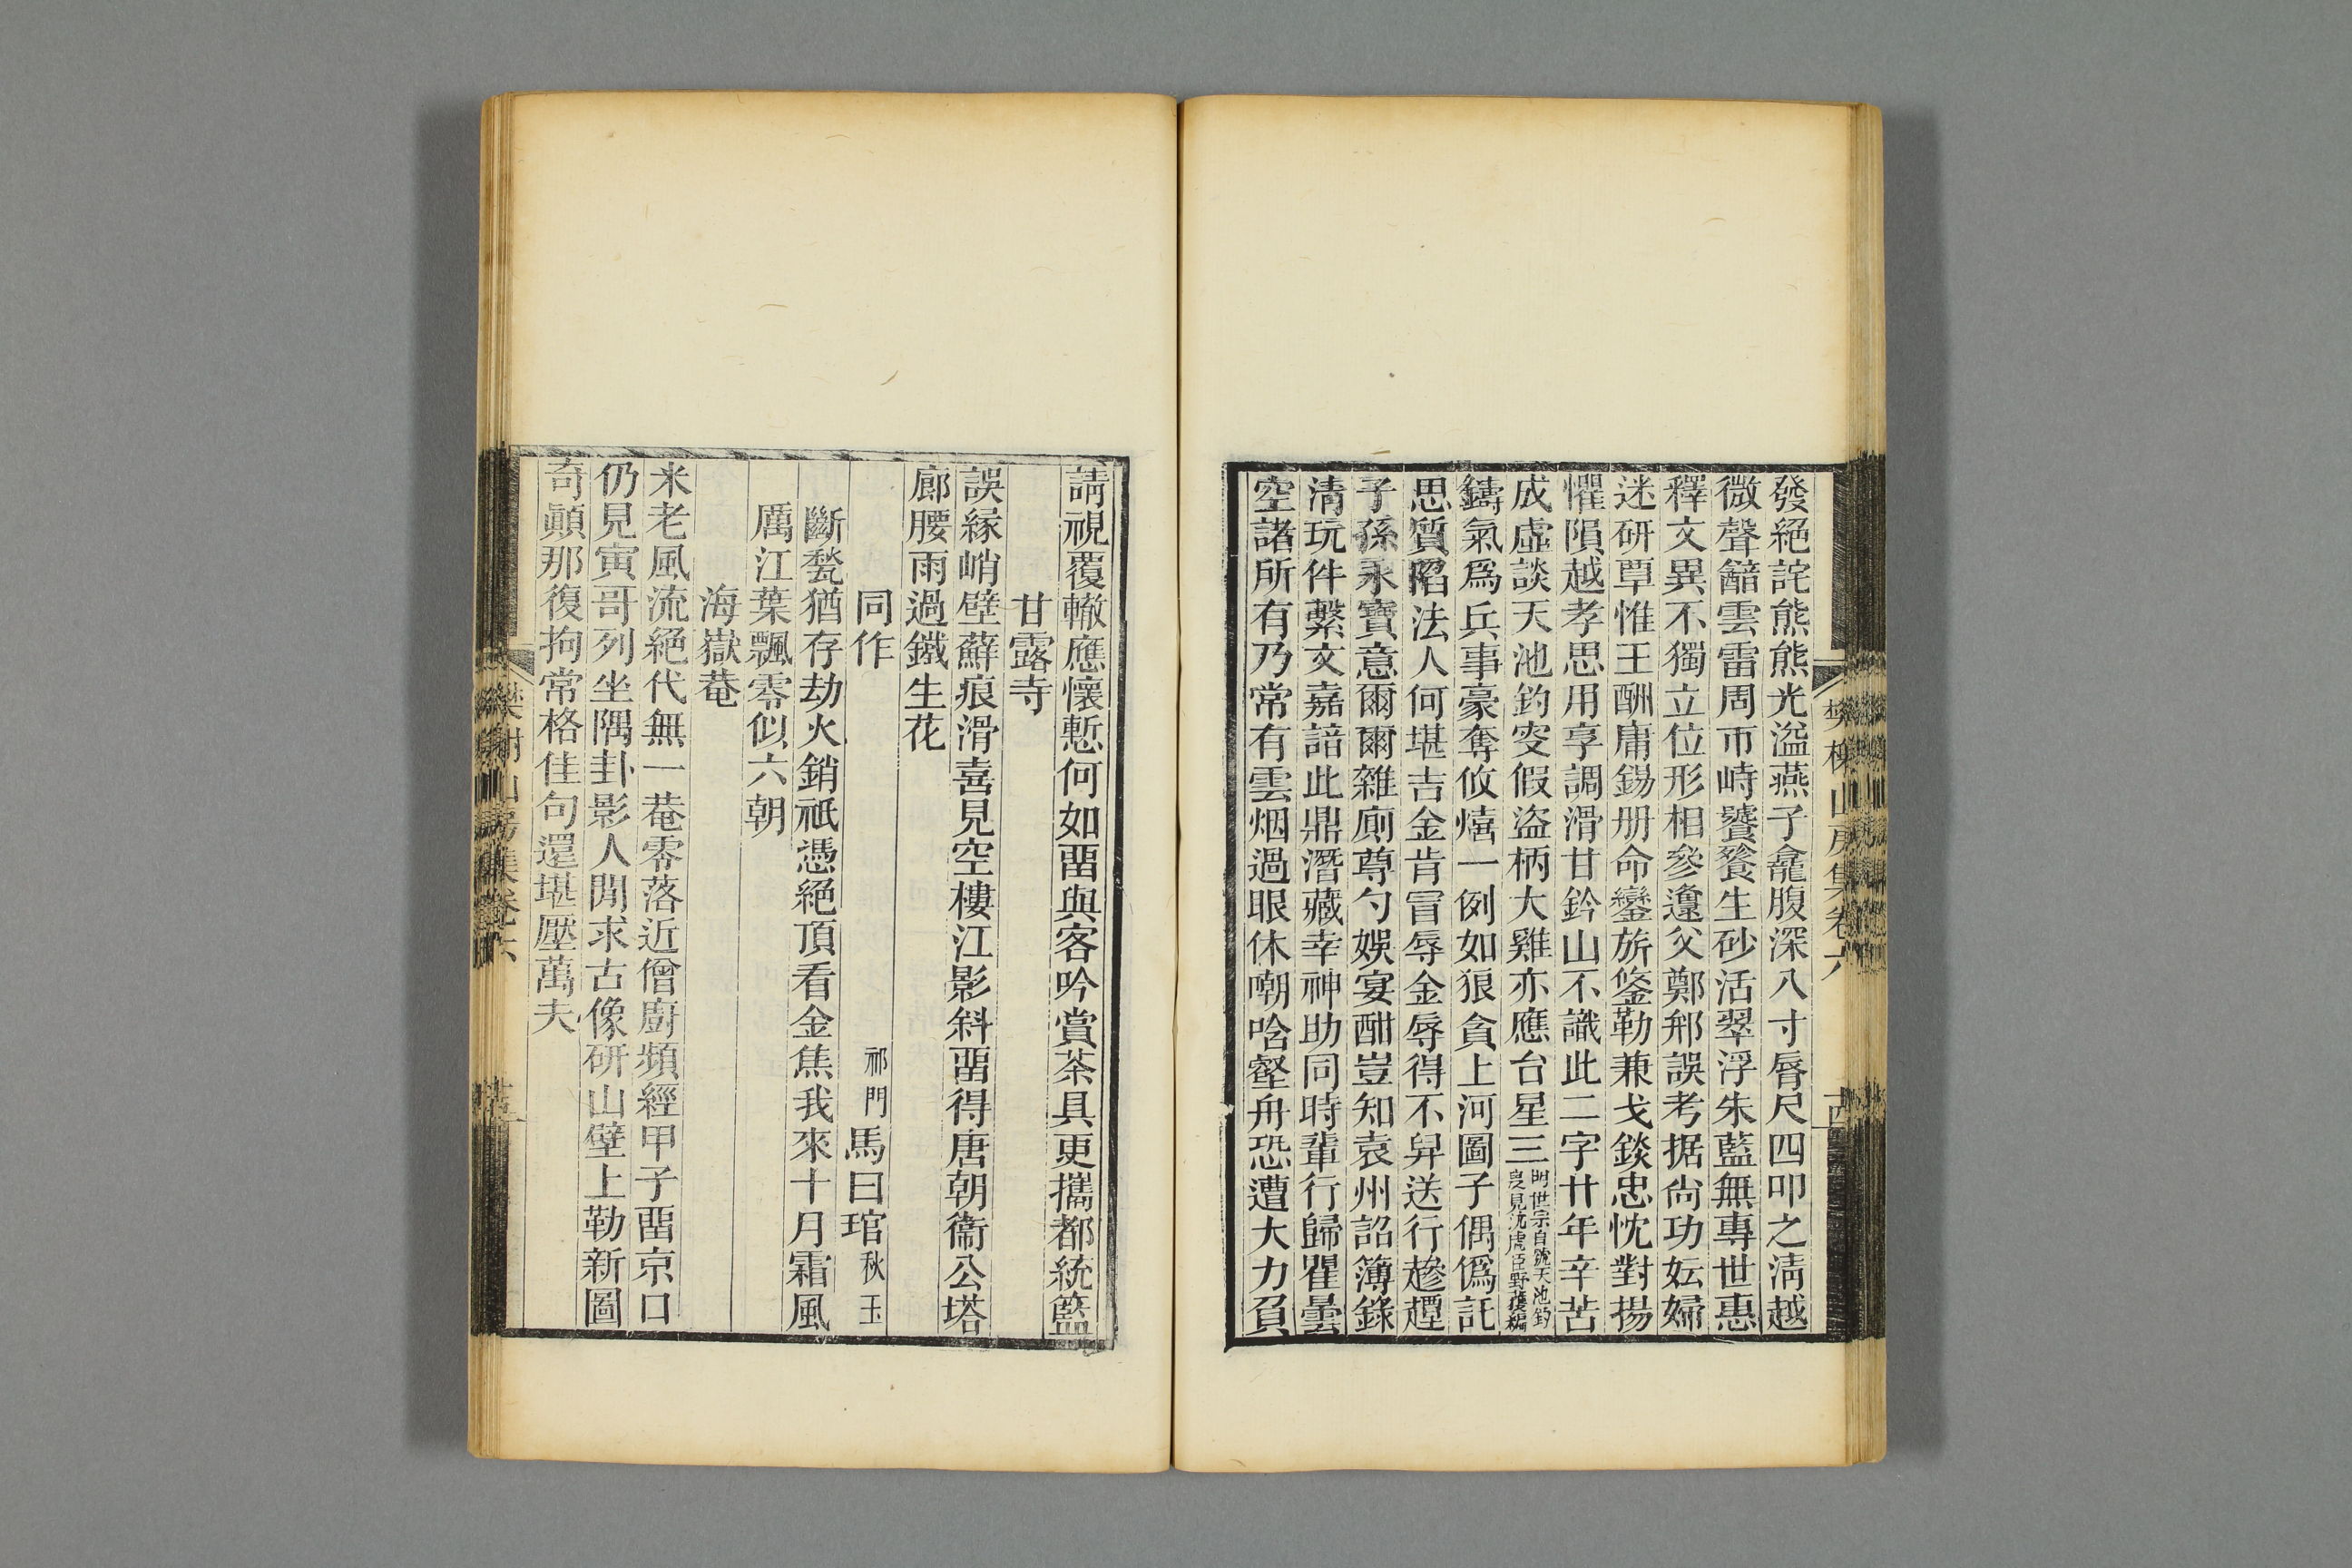 發絕詫熊熊光溢燕子龕腹深八寸脣尺四叩之淸越
微聲韽雲雷周帀峙饕餮生砂活翠浮朱藍無專世惠
釋文異不獨立位形相參邍父鄭邢誤考据尙功妘婦
迷研覃惟王酬庸錫册命鑾旂鋚勒兼戈錟忠忱對揚
懼隕越孝思用享調滑甘鈐山不識此二字廿年辛苦
成虛談天池釣叟假盜柄大雞亦應台星三明世宗自號天池釣叟見沈虎臣野獲編
鑄氣爲兵事豪奪攸熺一例如狼貪上河圖子偶僞託
思質䧟法人何堪吉金肯冒辱金辱得不舁送行趁趯
子孫永寶意爾爾雜廁尊勺娛宴酣豈知袁州詔簿錄
淸玩件繫文嘉諳此鼎潛藏幸神助同時輩行歸瞿曇
空諸所有乃常有雲烟過眼休嘲唅壑舟恐遭大力負
樊榭山房集卷六
請視覆轍應懷慙何如畱與客吟賞茶具更攜都統籃
甘露寺
誤緣峭壁蘚痕滑喜見空樓江影斜畱得唐朝衞公塔
廊腰雨過鐵生花
同作 祁門馬曰琯秋玉
斷甃猶存劫火銷祇憑絕頂看金焦我來十月霜風
厲江葉飄零似六朝
海嶽菴
米老風流絕代無一菴零落近僧廚頻經甲子畱京口
仍見寅哥列坐隅卦影人閒求古像研山壁上勒新圖
奇顚那復拘常格佳句還堪壓萬夫
樊榭山房集卷六